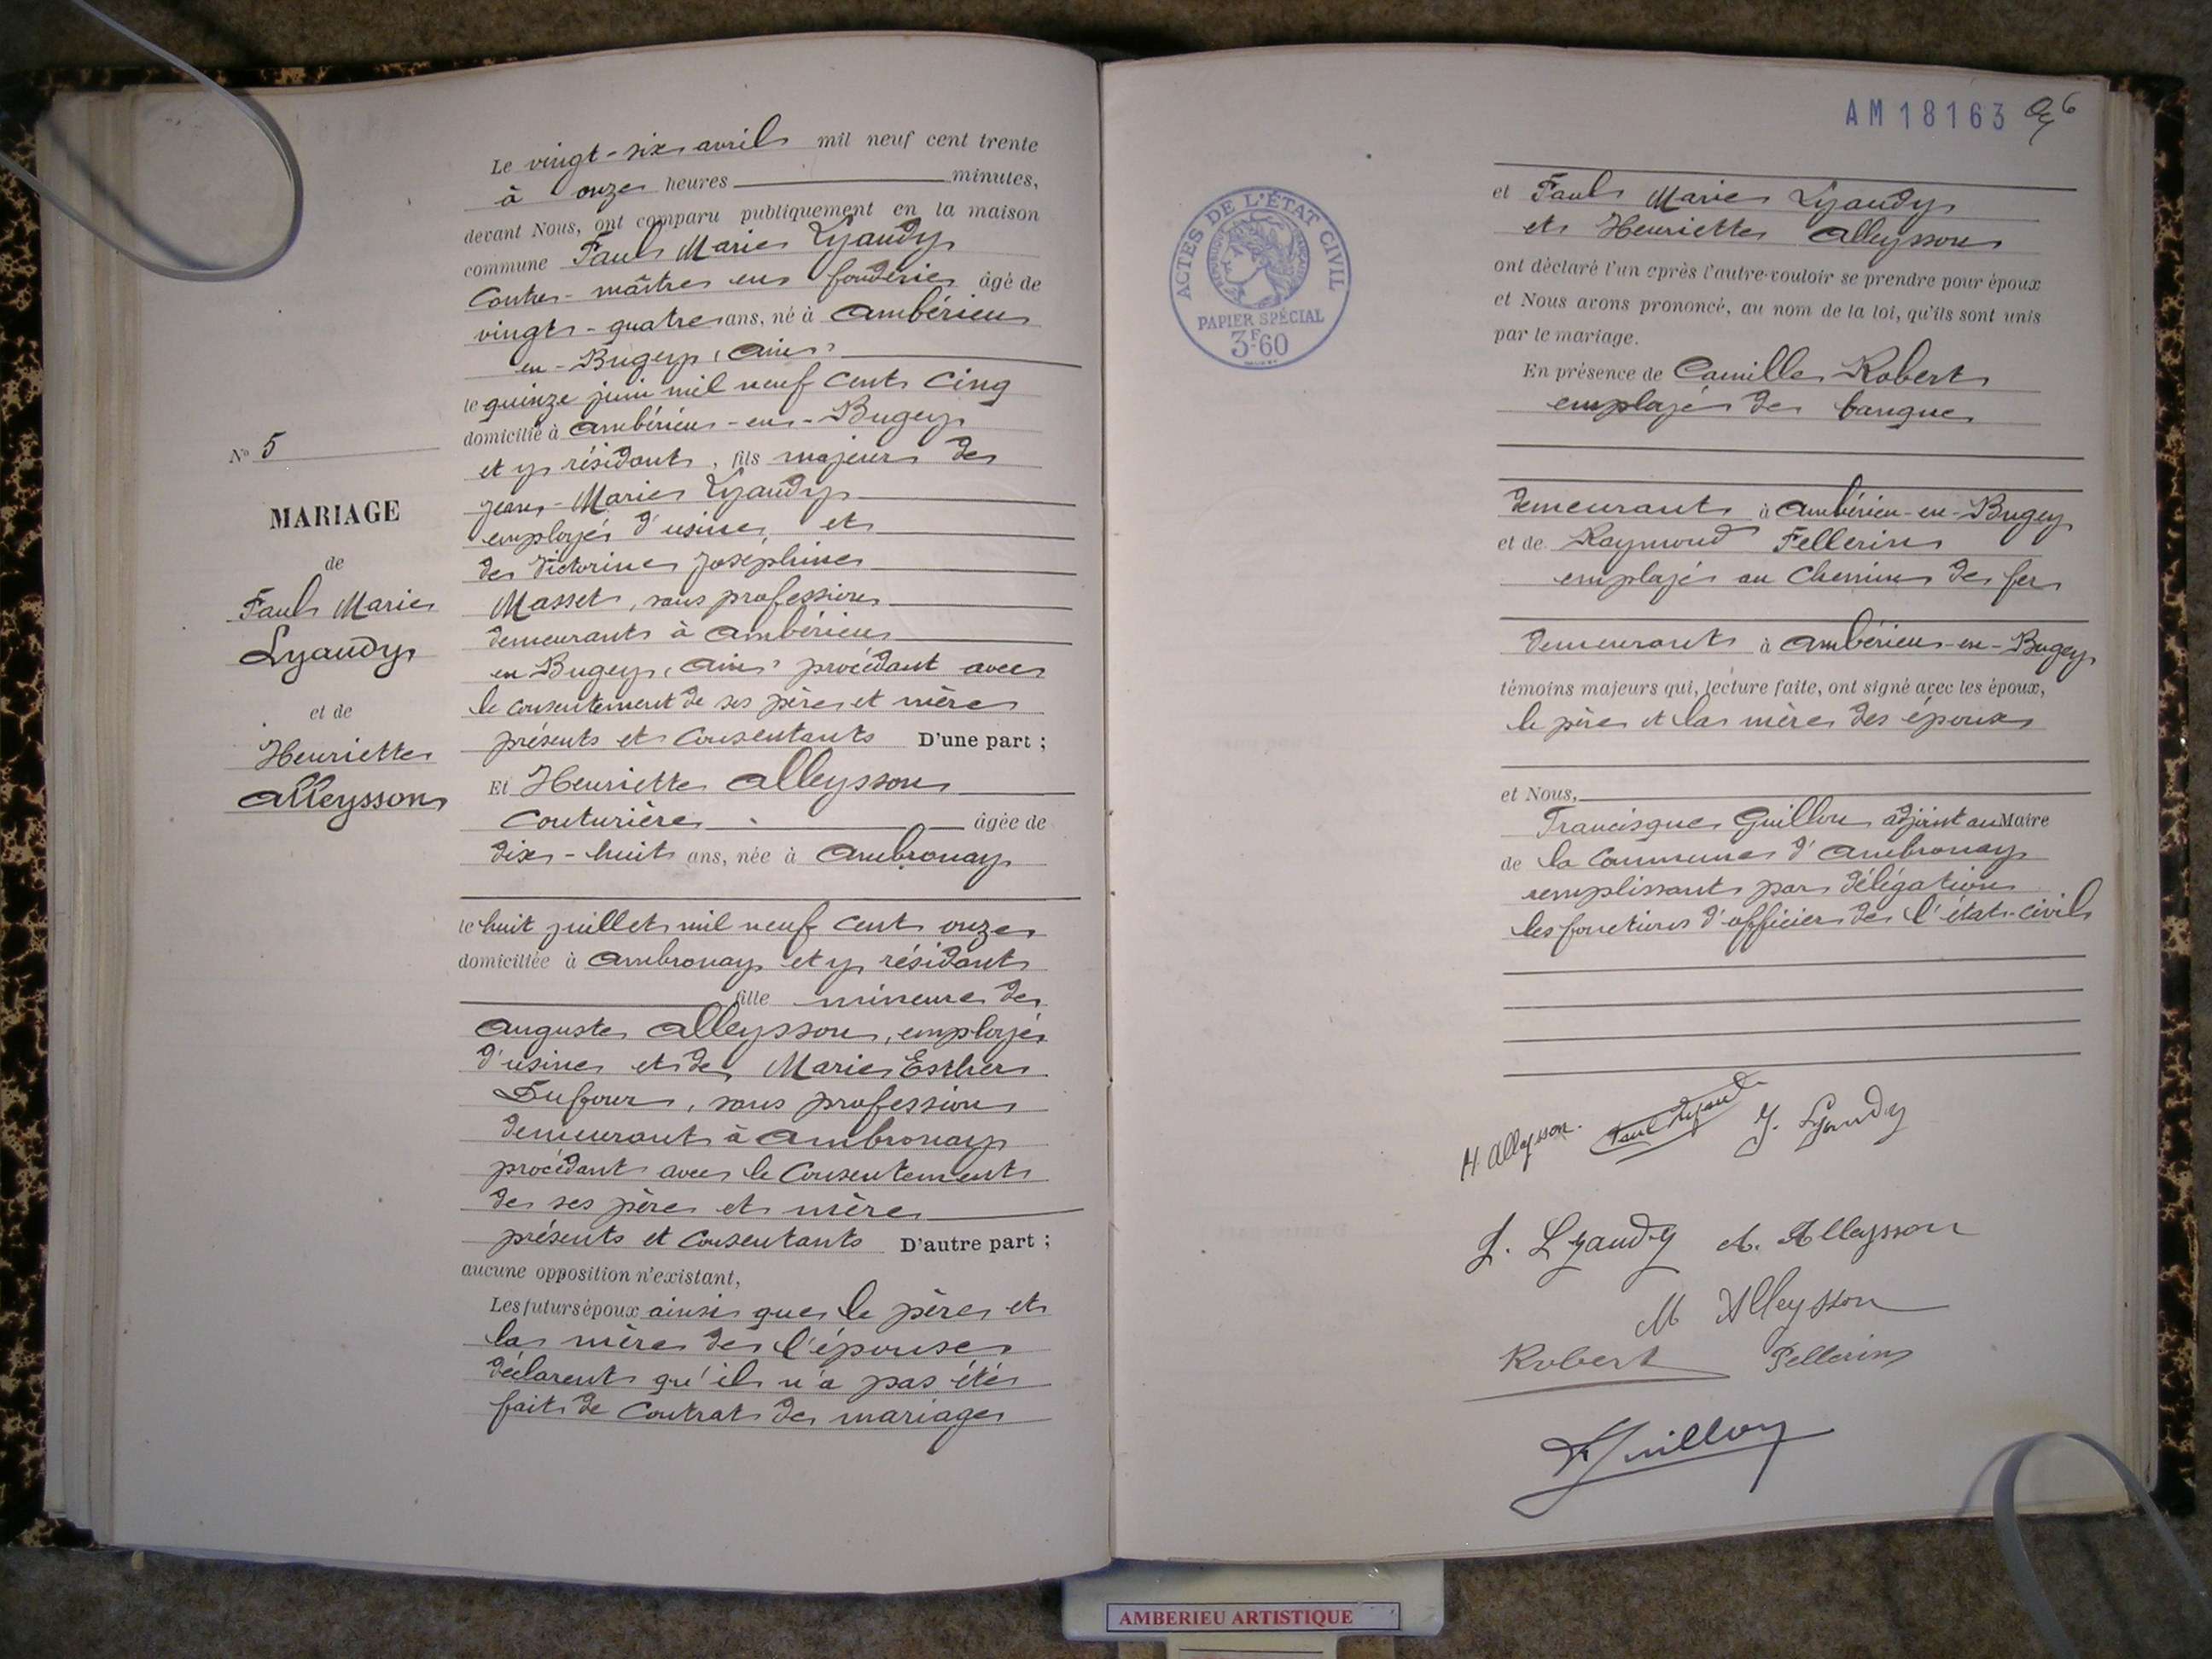 N° 5
MARIAGE
de
Paul Marie
Lyaudy
et de
Henriette
Alleysson
Le vingt-six avril mil neuf cent trente
à onze heures minutes,
devant Nous, ont comparu publiquement en la maison
commune Paul Marie Lyaudy
Contre-maître en fonderie âgé de
vingt-quatre ans, né à Ambérieu
en-Bugey (Ain)
le quinze juin mil neuf cent cinq
domicilié à Ambérieu-en-Bugey
et y résidant, fils majeur de
Jean-Marie Lyaudy
employé d'usine et
de Victorine Joséphine
Masset, sans profession
demeurant à Ambérieu
en Bugey (Ain) procédant avec
le consentement de ses père et mère
présents et consentants D'une part ;
Et Henriette Alleysson
Couturière âgée de
dix-huit ans, née à Ambronay
le huit juillet mil neuf cent onze
domiciliée à Ambronay et y résidant
fille mineure de
Auguste Alleysson, employé
d'usine et de Marie Esther
Dufour, sans profession
demeurant à Ambronay
procédant avec le consentement
de ses père et mère
présents et consentants D'autre part ;
aucune opposition n'existant,
Les futurs époux ainsi que le père et
la mère de l'épouse
déclarent qu'il n'a pas été
fait de contrat de mariage
AM18163
ACTES DE L'ÉTAT CIVIL
RÉPUBLIQUE FRANÇAISE
PAPIER SPÉCIAL
3F60
et Paul Marie Lyaudy
et Henriette Alleysson
ont déclaré l'un après l'autre vouloir se prendre pour époux
et Nous avons prononcé, au nom de la loi, qu'ils sont unis
par le mariage.
En présence de Camille Robert
employé de banque
demeurant à Ambérieu-en-Bugey
et de Raymond Pellerin
employé au Chemin de fer
demeurant à Ambérieu-en-Bugey
témoins majeurs qui, lecture faite, ont signé avec les époux,
le père et la mère des époux
et Nous,
Francisque Guillon adjoint au Maire
de la Commune d'Ambronay
remplissant par délégation
les fonctions d'officier de l'état-civil
H Alleysson. Paul Lyaudy J. Lyaudy
J. Lyaudy A. Alleysson
M Alleysson
Robert Pellerin
F Guillon
AMBERIEU ARTISTIQUE